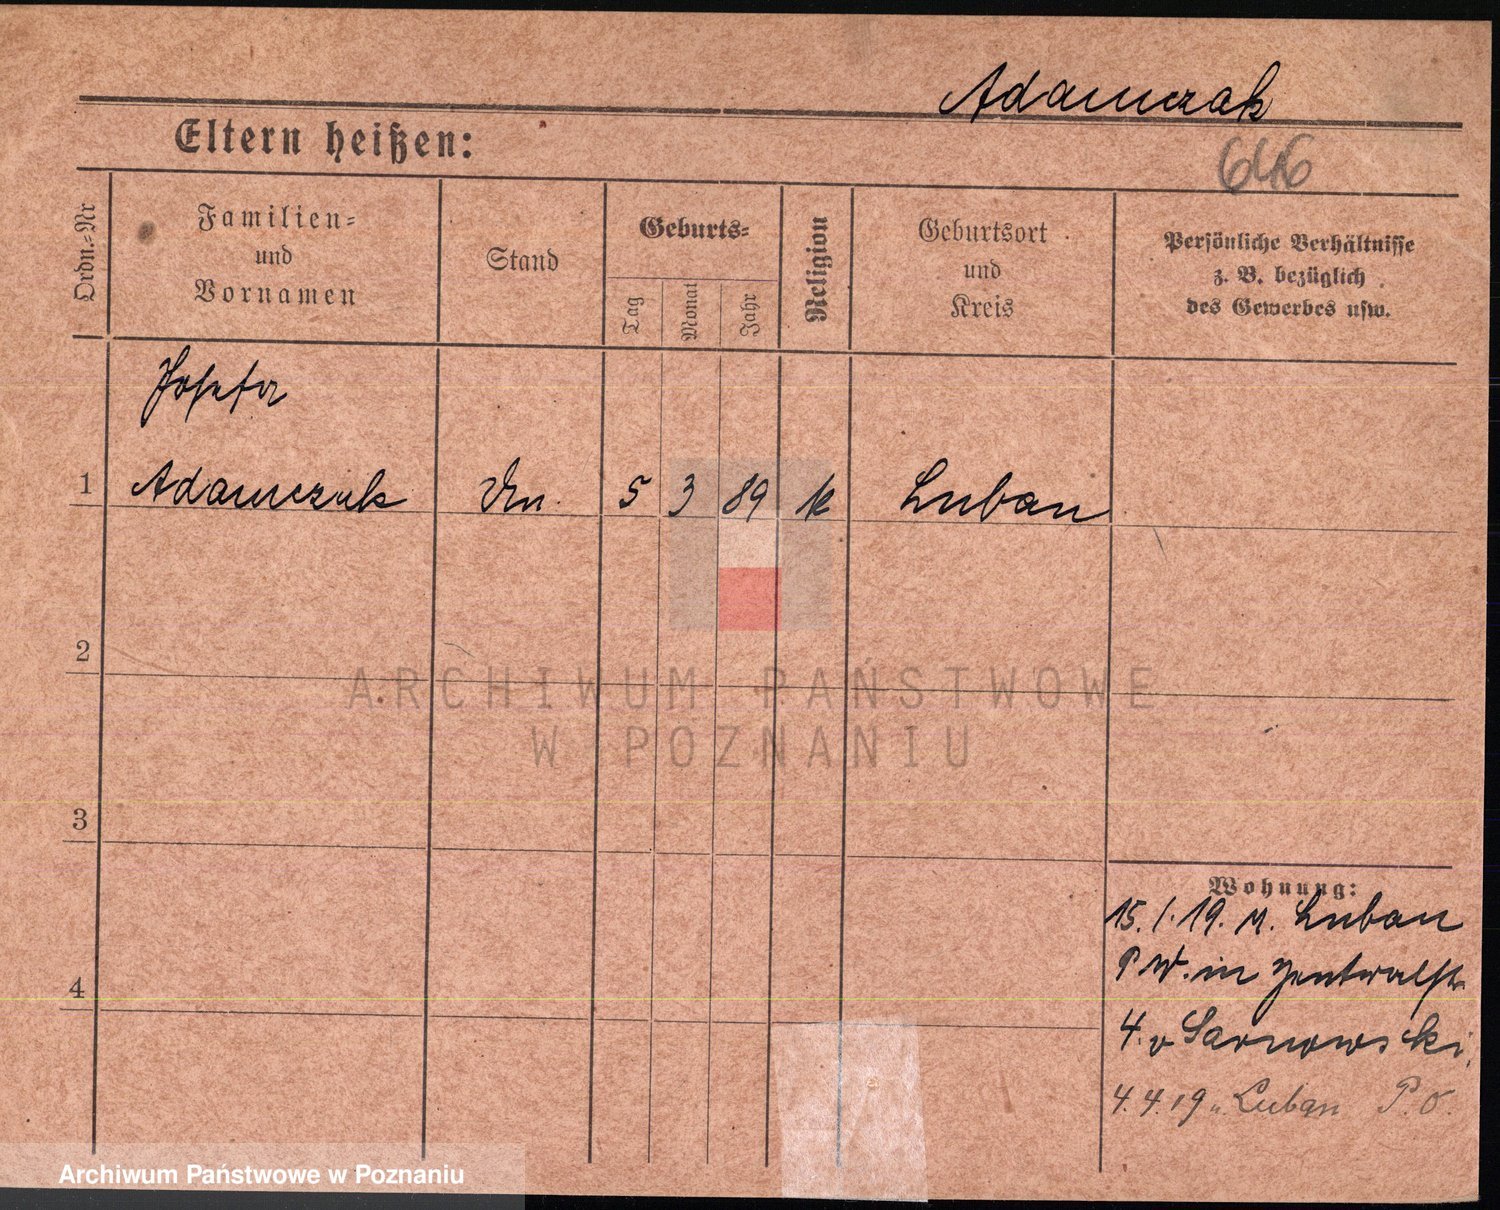 Adamczak
Eltern heißen:
646
Ordn.-Nr
Familien-
und
Vornamen
Stand
Geburts-
Tag
Monat
Jahr
Religion
Geburtsort
und
Kreis
Persönliche Verhältnisse
z. B. bezüglich
des Gewerbes usw.
Josefa
1 Adamczak 5 3 89 k Luban
2
ARCHIWUM PAŃSTWOWE
W POZNANIU
3
Wohnung:
15. 1. 19. n. Luban
P W. in
4
4. v Sarnowski
4. 4. 19 n. Luban P. O.
Archiwum Państwowe w Poznaniu